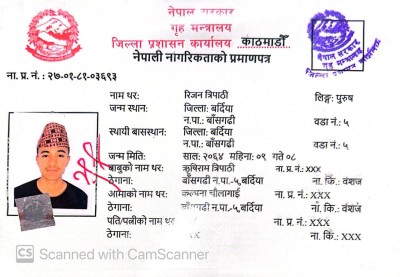 नेपाल सरकार
गृह मन्त्रालय
जिल्ला प्रशासन कार्यालय काठमाडौँ
नेपाली नागरिकताको प्रमाणपत्र
नेपाल सरकार
गृह मन्त्रालय
जिल्ला प्रशासन कार्यालय
ना. प्र. नं. : २७-०१-८१-०३६९३
नाम थर: रिजन त्रिपाठी लिङ्ग: पुरुष
जन्म स्थान: जिल्ला: बर्दिया
न.पा.: बाँसगढी वडा नं.: ५
स्थायी बासस्थान: जिल्ला: बर्दिया
न.पा.: बाँसगढी वडा नं.: ५
जन्म मिति: साल: २०६४ महिना: ०९ गते ०८
बाबुको नाम थर: ऋषिराम त्रिपाठी ना. प्र. नं.: xxx
ठेगाना: बाँसगढी न.पा.-५, बर्दिया ना. कि.: वंशज
आमाको नाम थर: कल्पना चौलागाई ना. प्र. नं.: XXX
ठेगाना: बाँसगढी न.पा.-५, बर्दिया ना. कि.: वंशज
पति/पत्नीको नाम थर: ना. प्र. नं.: XXX
ठेगाना: XX ना. कि.: XXX
CS Scanned with CamScanner